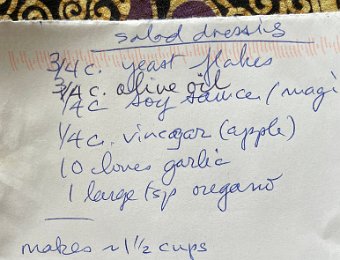 salad dressing
3/4 c. yeast flakes
3/4 c. olive oil
1/4 c soy sauce / magi
1/4 c. vinegar (apple)
10 cloves garlic
1 large tsp oregano
makes ~ 1 1/2 cups